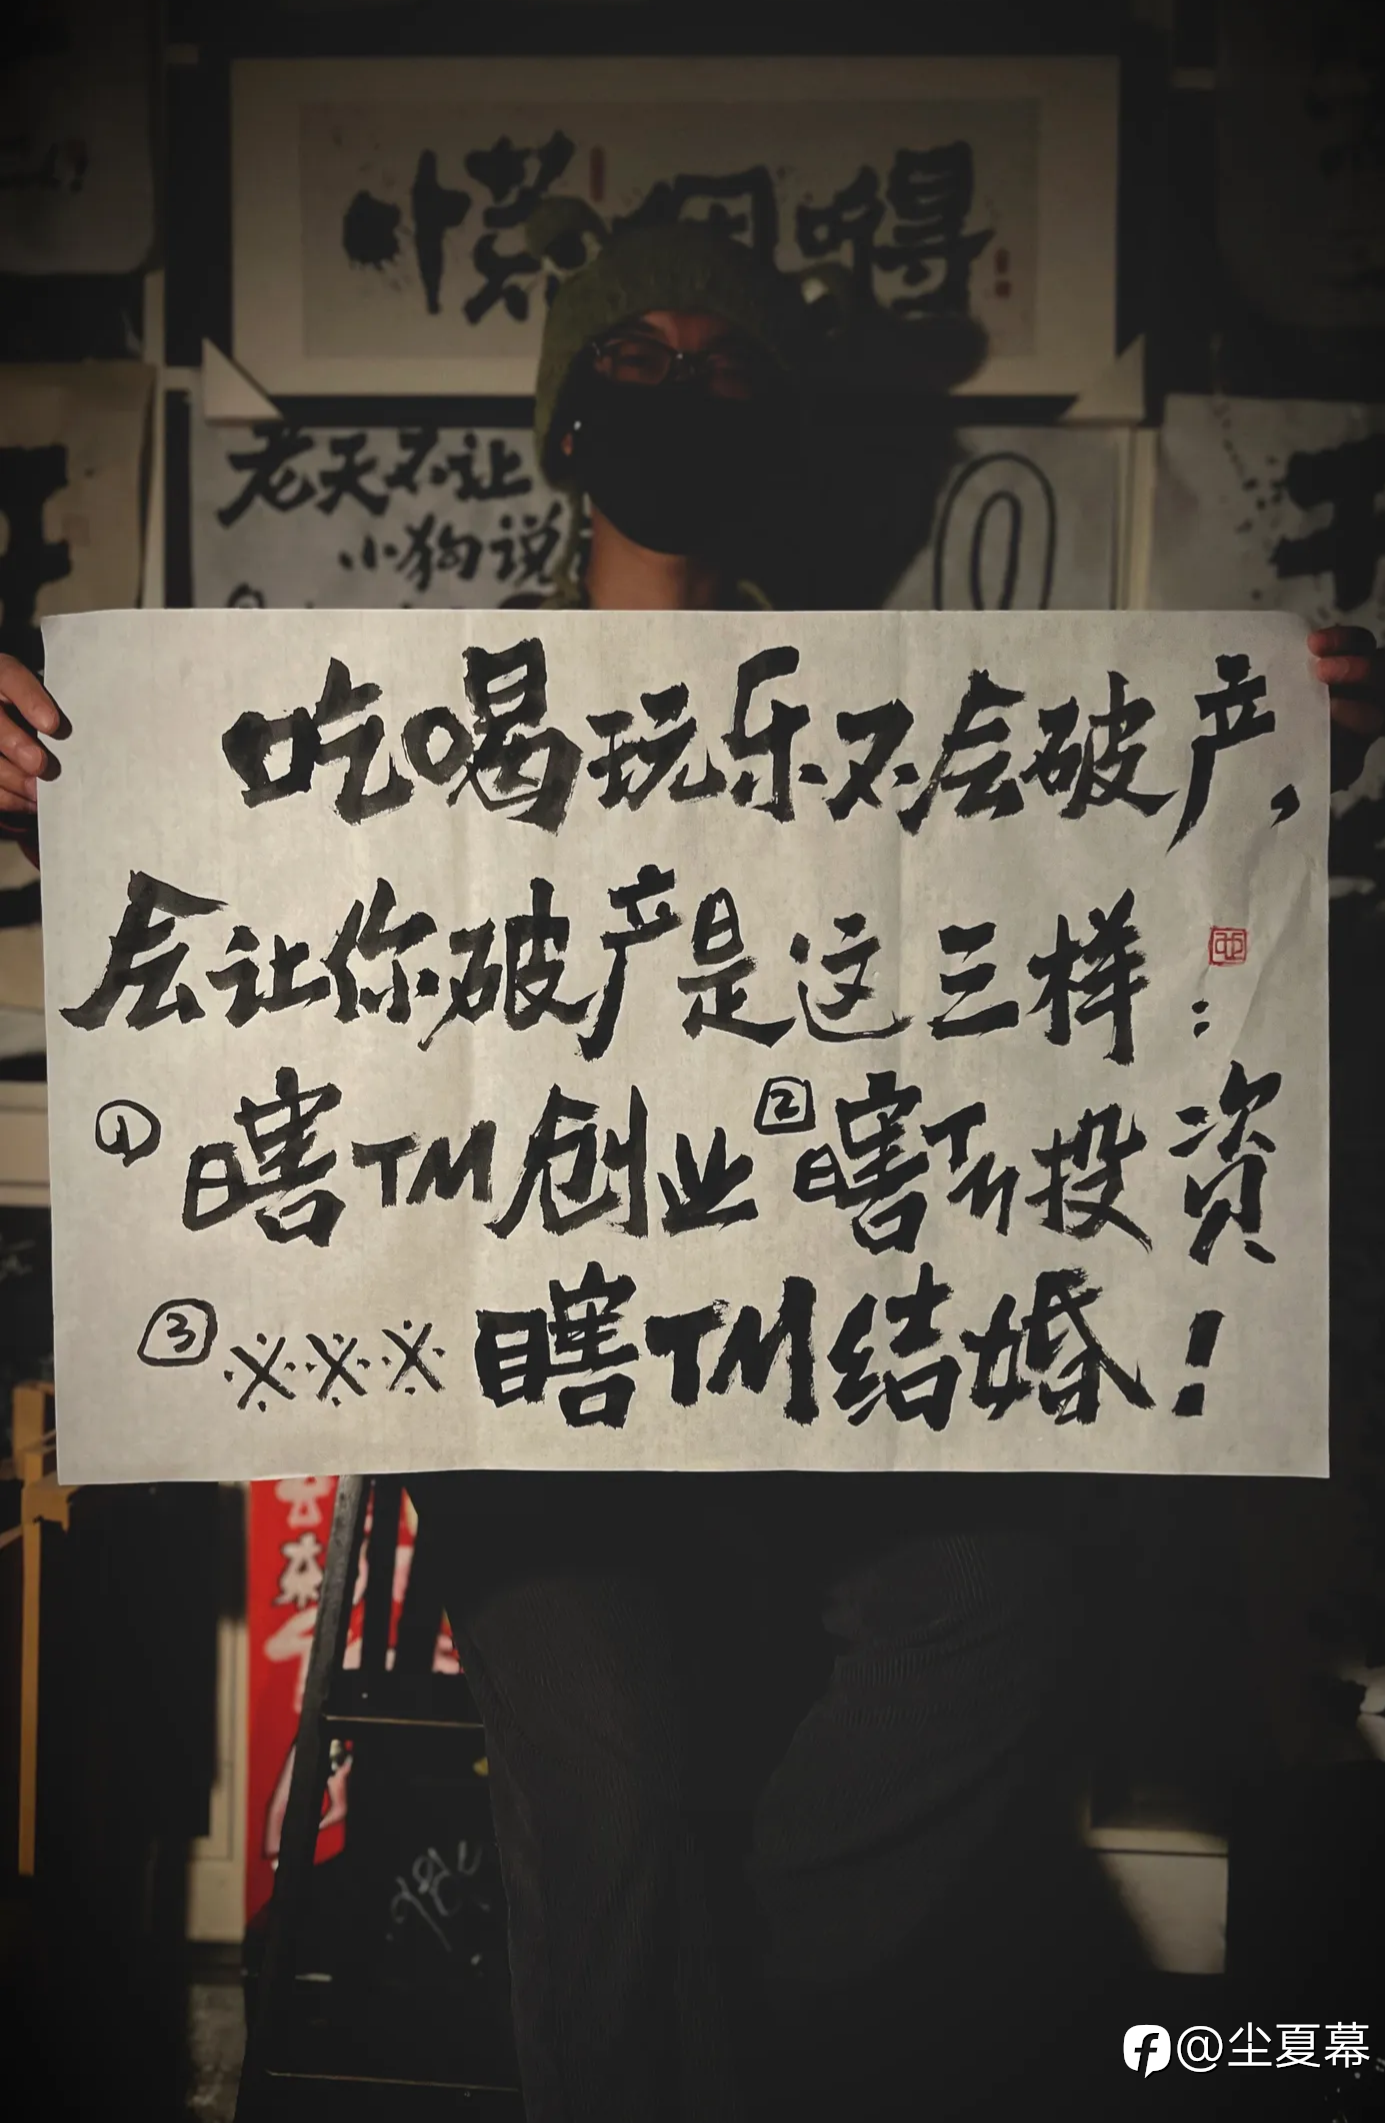 老天不让
小狗说
吃喝玩乐不会破产，
会让你破产是这三样：
①瞎TM创业②瞎TM投资
③※※※瞎TM结婚！
@尘夏幕